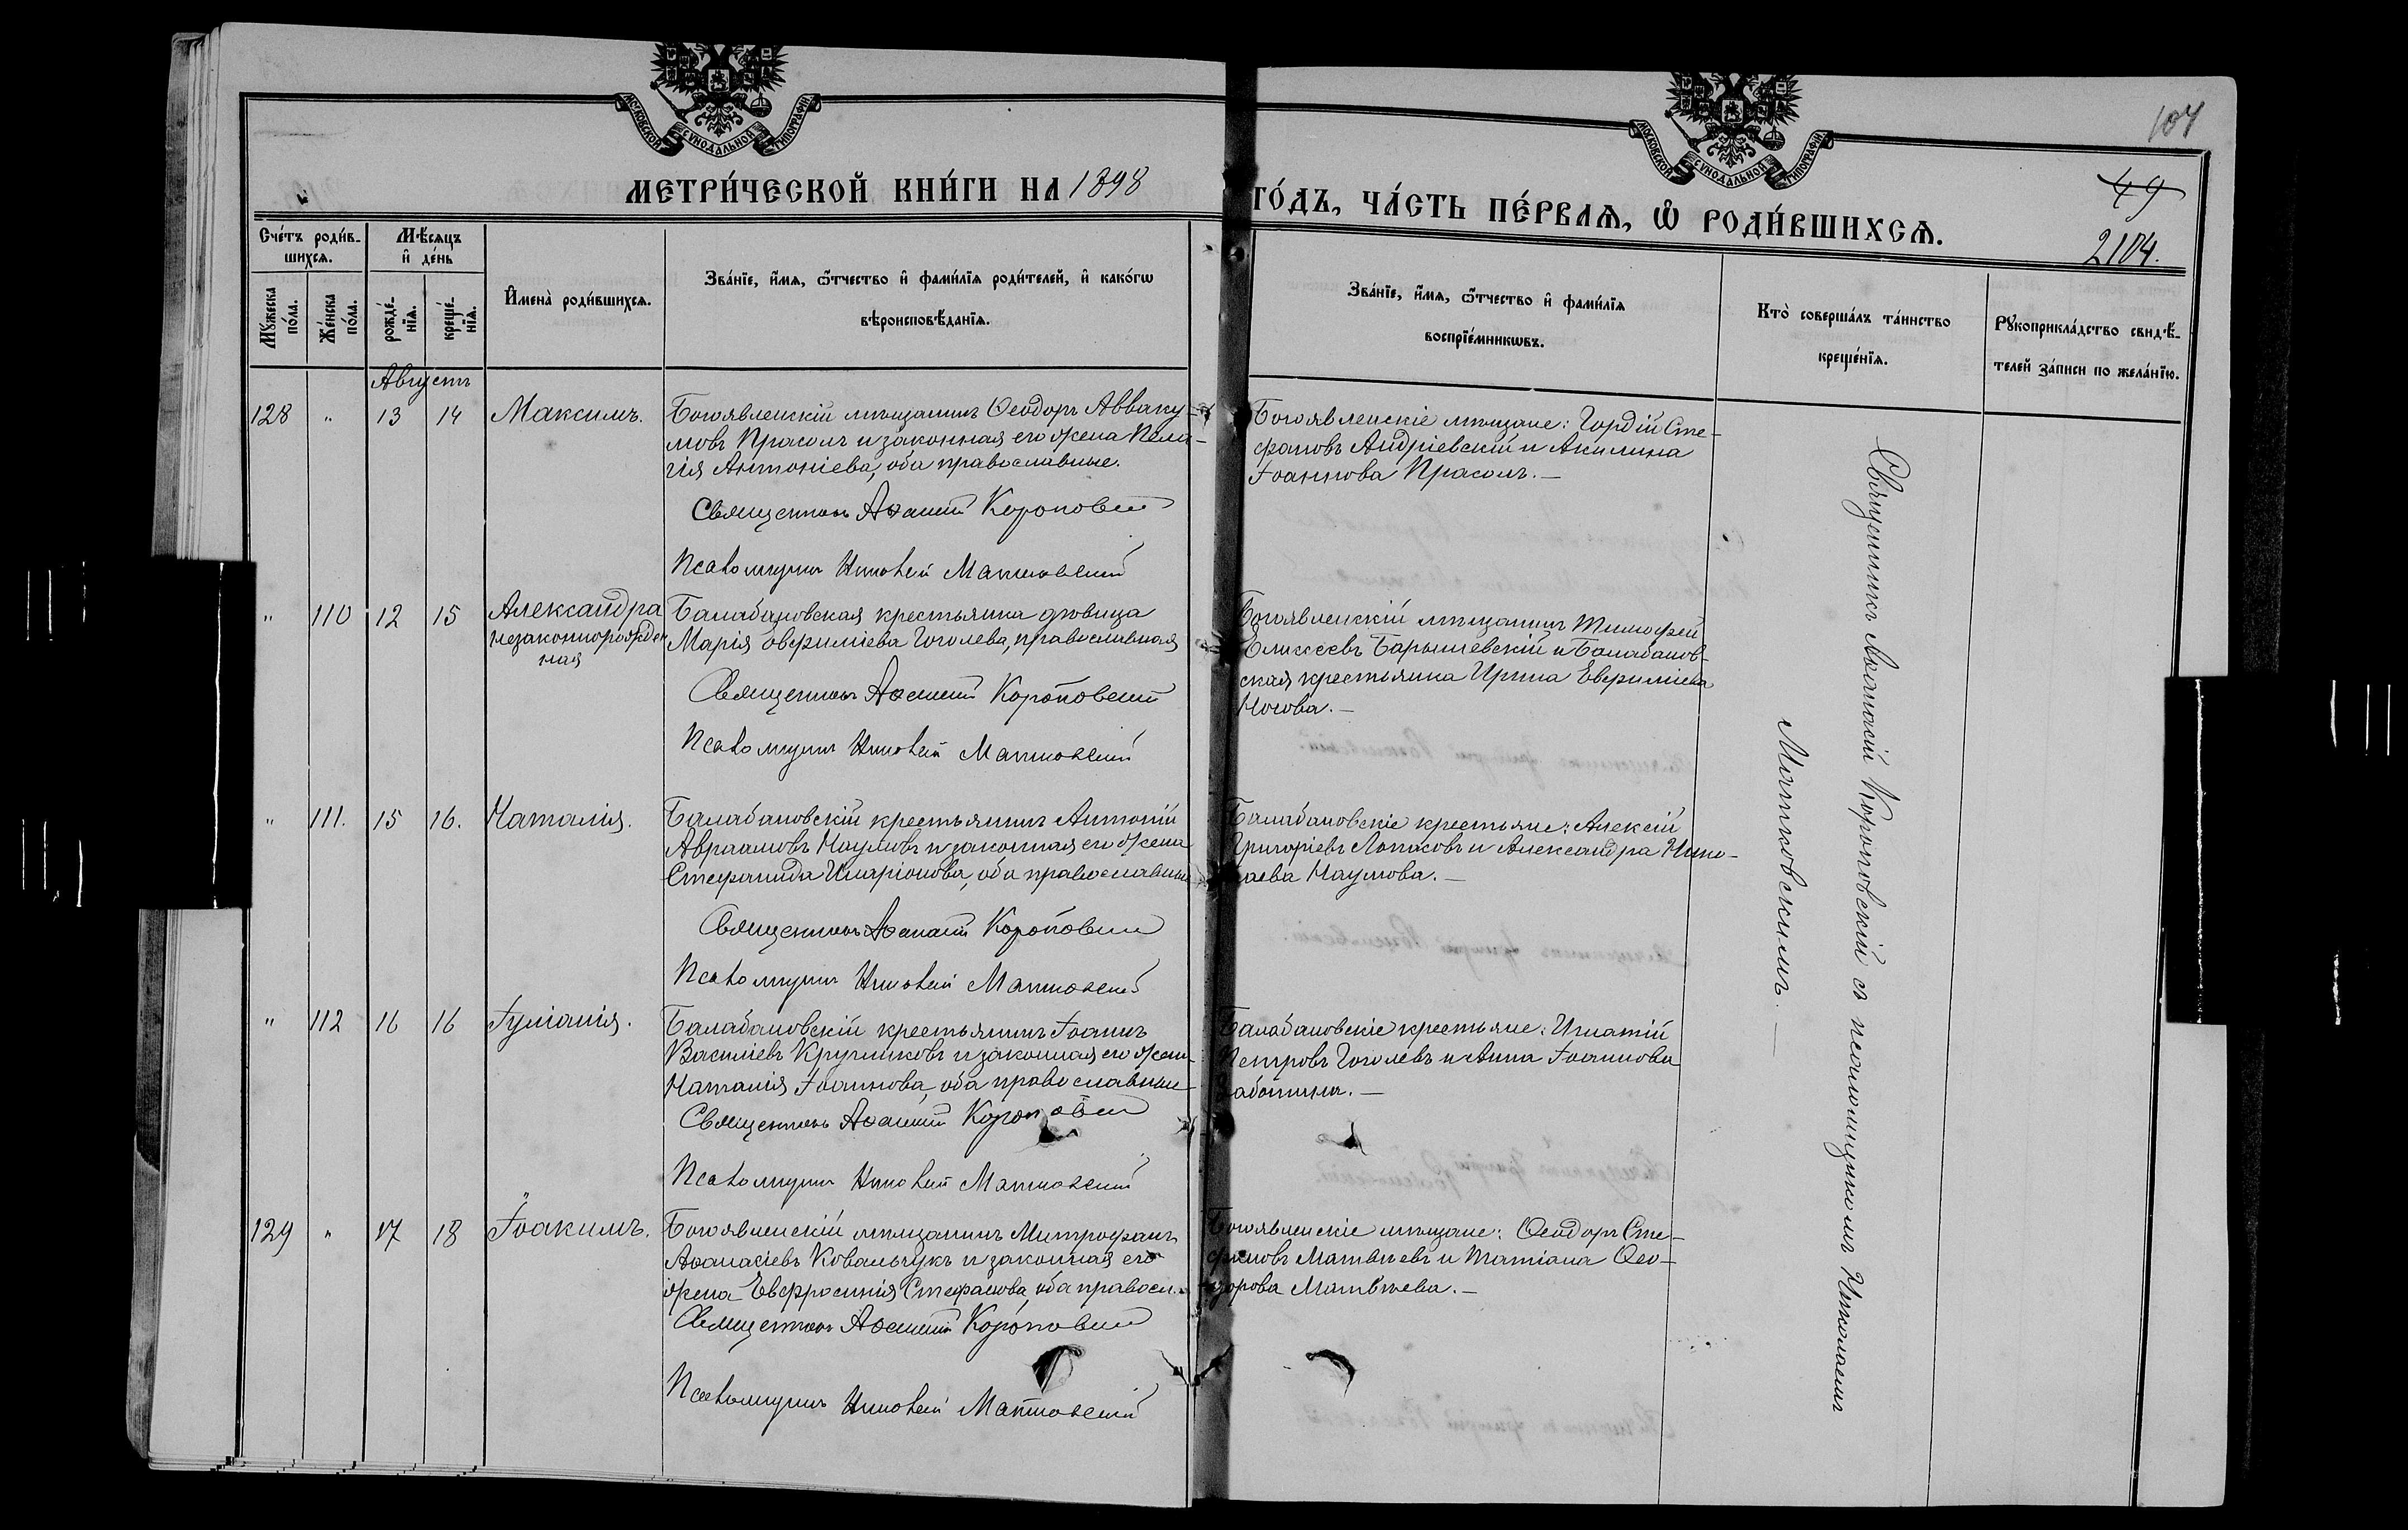 МОСКОВСКОЙ СѴНОДАЛЬНОЙ ТИПОГРАФІИ
МОСКОВСКОЙ СѴНОДАЛЬНОЙ ТИПОГРАФІИ
104
МЕТРИ́ЧЕСКОЙ КНИ́ГИ НА 1898
ГО́ДЪ, ЧА́СТЬ ПЕ́РВАѦ, Ѿ РОДИ́ВШИХСѦ.
49
2104.
Сче́тъ роди́в-
шихсѧ.
Мꙋ́жеска по́ла.
Же́нска по́ла.
Мѣ́сѧцъ
и҆ де́нь
рожде́-
нїѧ.
креще́-
нїѧ.
И҆мена̀ роди́вшихсѧ.
Зва́нїе, и҆́мѧ, ѻ҆́тчество и҆ фами́лїѧ роди́телей, и҆ како́гѡ
вѣроисповѣ́данїѧ.
Зва́нїе, и҆́мѧ, ѻ҆́тчество и҆ фами́лїѧ
воспрїе́мникѡвъ.
Кто̀ соверша́лъ та́инство
креще́нїѧ.
Рꙋкоприкла́дство свидѣ́-
телей за́писи по жела́нїю.
Августъ
128 " 13 14 Максимъ.
Богоявленскій мѣщанинъ Ѳеодоръ Авваку-
мовъ Прасолъ и законная его жена Пела-
гія Антоніева, оба православные.
Священникъ Аѳанасій Короповскій
Псаломщикъ Николай Матковскій
Богоявленскіе мѣщане: Гордій Сте-
фановъ Андріевскій и Акилина
Іоаннова Прасолъ.—
" 110 12 15 Александра
незаконнорожден
ная
Балабановская крестьянка дѣвица
Марія Евфиміева Гоголева, православная
Священникъ Аѳанасій Короповскій
Псаломщикъ Николай Матковскій
Богоявленскій мѣщанинъ Тимофей
Елисеевъ Барышевскій и Балабанов-
ская крестьянка Ирина Евфиміева
Ногова.—
" 111. 15 16. Наталія.
Балабановскій крестьянинъ Антоній
Авраамовъ Наумовъ и законная его жена
Стефанида Иларіонова, оба православные
Священникъ Аѳанасій Короповскій
Псаломщикъ Николай Матковскій
Балабановскіе крестьяне: Алексій
Григоріевъ Лопасовъ и Александра Нико-
лаева Наумова.—
" 112 16 16 Іуліанія.
Балабановскій крестьянинъ Іоаннъ
Василіевъ Кругликовъ и законная его жена
Наталія Іоаннова, оба православные
Священникъ Аѳанасій Короповскій
Псаломщикъ Николай Матковскій
Балабановскіе крестьяне: Игнатій
Петровъ Гоголевъ и Анна Іоаннова
129 " 17 18 Іоакимъ.
Богоявленскій мѣщанинъ Митрофанъ
Аѳанасіевъ Ковальчукъ и законная его
жена Евфросинія Стефанова, оба правосл.
Священникъ Аѳанасій Короповскій
Псаломщикъ Николай Матковскій
Богоявленскіе мѣщане: Ѳеодоръ Сте-
фановъ Матвѣевъ и Татіана Ѳео-
дорова Матвѣева.—
Священникъ Аѳанасій Короповскій съ псаломщикомъ Николаемъ
Матковскимъ.—